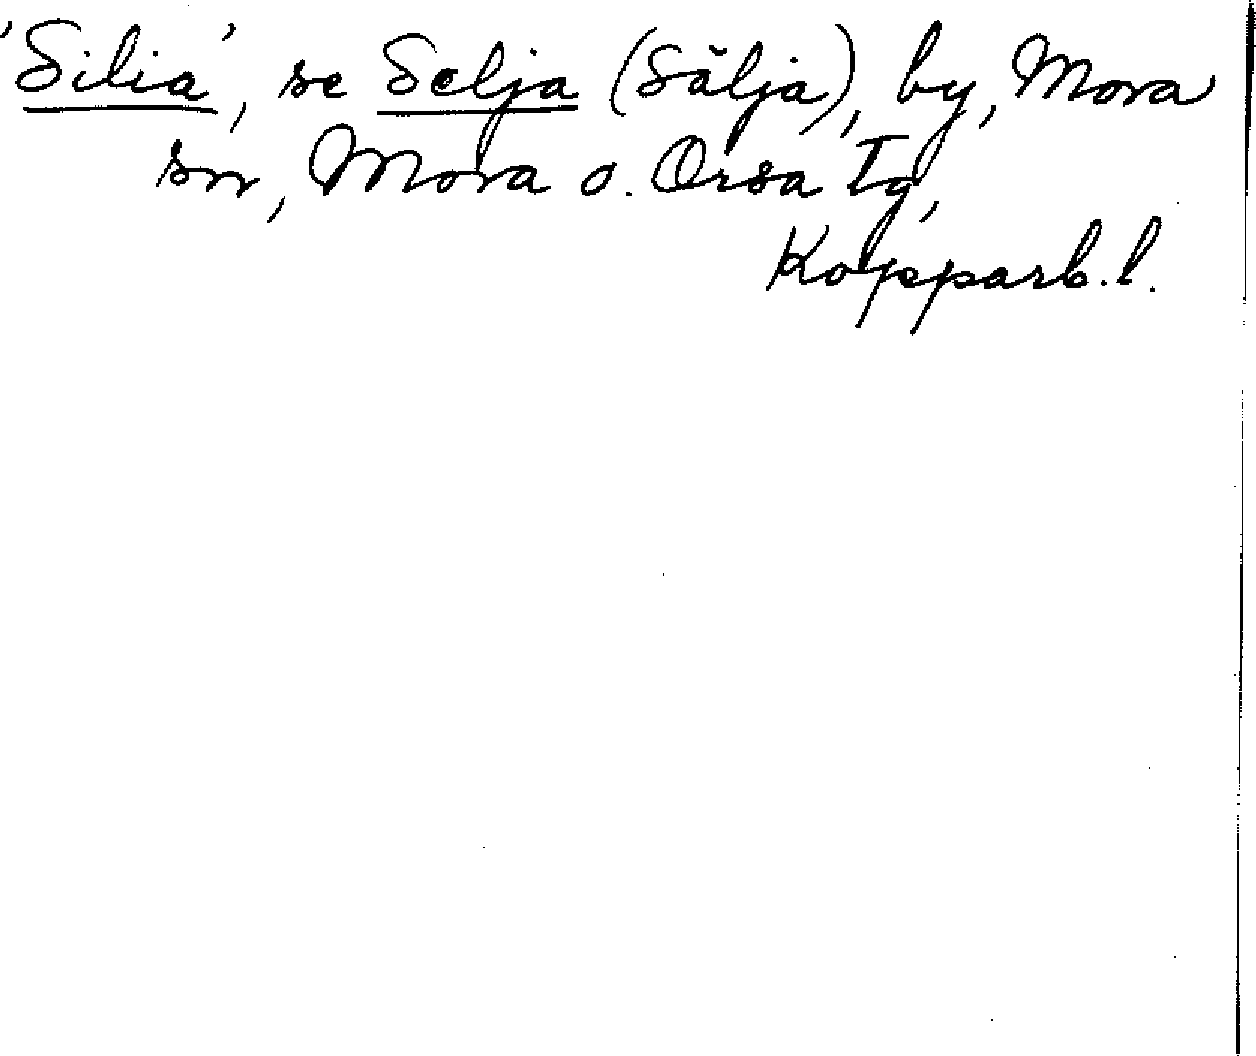 'Silia', se Selja (Sälja), by, Mora
sn, Mora o. Orsa tg,
Kopparb. l.